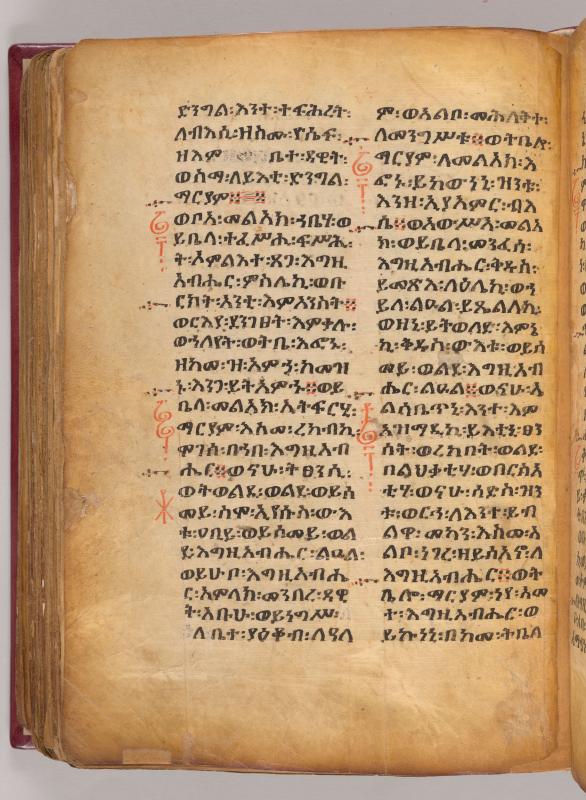 ድንግል፡እንተ፡ተፍሕረት፡
ለብእሲ፡ዘስሙ፡ዮሴፍ፡
ዘእም ቤተ፡ዳዊት፡
ወስማ፡ለይእቲ፡ድንግል፡
ማርያም፨
ወቦአ፡መልአክ፡ኀቤሃ፡ወ
ይቤላ፡ተፈሥሒ፡ፍሥሕ
ት፡ኦምልእተ፡ጸጋ፡እግዚ
አብሔር፡ምስሌኪ፡ወቡ
ርክት፡አንቲ፡እምአንስት፨
ወርእየ፡ደንገፀት፡እምቃሉ፡
ወኀለየት፡ወትቤ፡እፎኑ፡
ዘከመ፡ዝ፡አምኃ፡ከመዝ
ኑ፡እንጋ፡ይትአምኁ፨ወይ
ቤላ፡መልአክ፡ኢትፍርሂ፡
ማርያም፡እስመ፡ረከብኪ፡
ሞገሰ፡በኀበ፡እግዚአብ
ሔር፨ወናሁ፡ትፀንሲ፡
ወትወልዲ፡ወልደ፡ወይሰ
መይ፡ስሞ፡ኢየሱስ፡ውእ
ቱ፡ዐቢይ፡ወይሰመይ፡ወል
ደ፡እግዚአብሔር፡ልዑል፡
ወይሁቦ፡እግዚአብሔ
ር፡አምላክ፡መንበረ፡ዳዊ
ት፡አቡሁ፡ወይነግሥ፡
ለቤተ፡ያዕቆብ፡ለዓለ
ም፡ወአልቦ፡መሕለቅት፡
ለመንግሥቱ፨ወትቤሎ፡
ማርያም፡ለመልአክ፡እ
ፎኑ፡ይከውነኒ፡ዝንቱ፡
እንዘ፡ኢያአምር፡ብእ
ሴ፨ወአውሥአ፡መልአ
ክ፡ወይቤላ፡መንፈሰ፡
እግዚአብሔር፡ቅዱስ፡
ይመጽእ፡ላዕሌኪ፡ወኀ
ይለ፡ልዑል፡ይጼልለኪ፡
ወዘኒ፡ይትወለድ፡እምኔ
ኪ፡ቅዱስ፡ውእቱ፡ወይሰ
መይ፡ወልደ፡እግዚአብ
ሔር፡ልዑል፨ወናሁ፡ኤ
ልሳቤጥኒ፡እንተ፡እም
አዝማዲኪ፡ይእቲኒ፡ፀን
ሰት፡ወረከበት፡ወልደ፡
በልህቃቲሃ፡ወበርስአ
ቲሃ፡ወናሁ፡ሳድስ፡ዝን
ቱ፡ወርኅ፡ለእንተ፡ይብ
ልዋ፡መካን፡እስመ፡አ
ልቦ፡ነገረ፡ዘይሰአኖ፡ለ
እግዚአብሔር፨ወት
ቤሎ፡ማርያም፡ነየ፡አመ
ት፡እግዚአብሔር፡ወ
ይኩነኒ፡በከመ፡ትቤለ